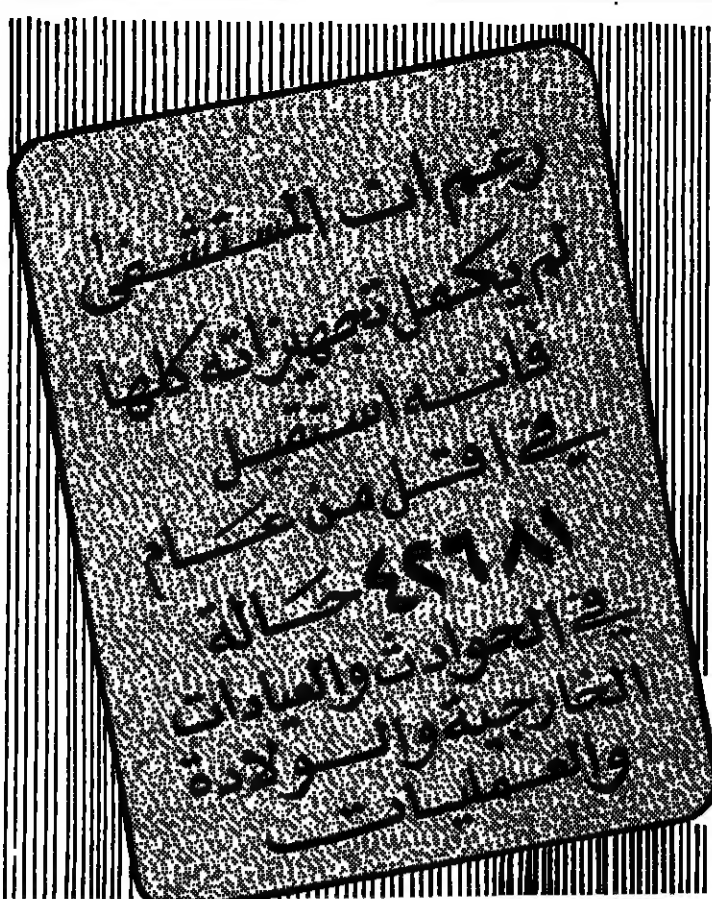 رغم ان المستشفى
لم يكمل تجهيزاته كلها
فانه استقبل
في اقل من عام
٤٢٦٨١ حالة
في الحوادث والعيادات
الخارجية والولادة
والعمليات